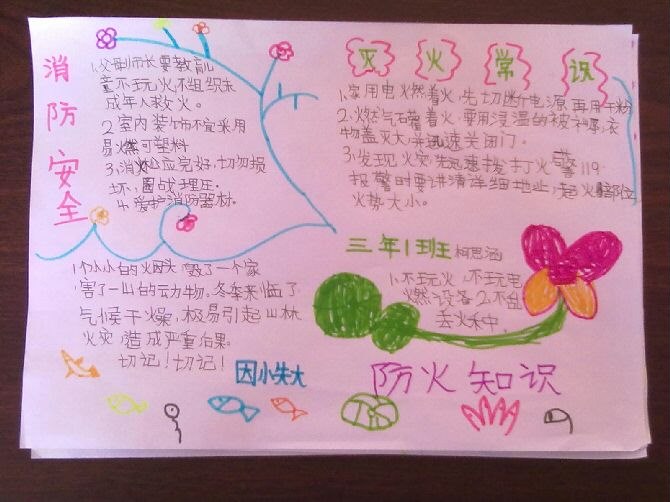 消防安全
1.父母师长要教育儿
童不玩火,不组织未
成年人救火。
2室内装饰不宜采用
易燃可塑料
3.消火栓应完好,切勿损
坏,圈占埋压。
4.爱护消防器材.
灭火常识
1.家用电燃着火,先切断电源再用干粉
2.燃气石着火,要用浸湿的被褥,衣
物盖灭火,并迅速关闭门。
3,发现火灾,先迅速拨打火警119.
报警时要讲清详细地址,起火部位
火势大小。
三年1班 柯思涵
1.不玩火,不玩电
燃设备2.不乱
丢火禾中.
1个小小的火烟头 毁了一个家
害了一山的动力物。冬季来临了
气候干燥,极易引起山林
火灾,造成严重后果。
切记!切记!
因小失大
防火知识